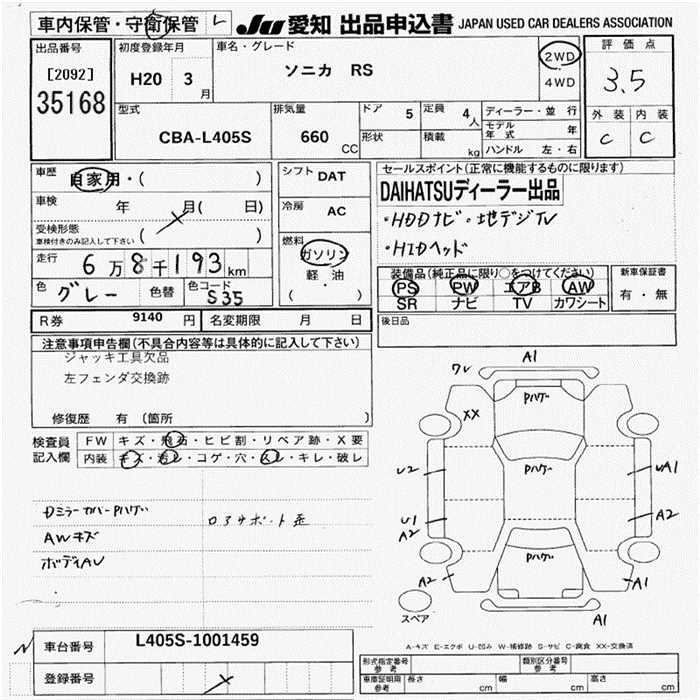 車内保管・守衛保管 L
JU 愛知 出品申込書 JAPAN USED CAR DEALERS ASSOCIATION
出品番号
[2092]
35168
初度登録年月
H20 3月
車名・グレード
ソニカ RS
2WD
4WD
評価点
3.5
外装 内装
C C
型式
CBA-L405S
排気量
660 CC
ドア 5
形状
定員 4人
積載 kg
ディーラー・並行
モデル年式 年
ハンドル 左・右
車歴 自家用・( )
車検 年 月( 日)
受検形態
車検付きのみ記入して下さい ( )
走行 6万8千193km
色 グレー 色替 色コード S35
シフト DAT
冷房 AC
燃料
ガソリン
軽・油
( ・ )
セールスポイント(正常に機能するものに限ります)
DAIHATSUディーラー出品
・HDDナビ・地デジTV
・HIDヘッド
装備品(純正品に限り○をつけてください)
PS PW エアB AW
SR ナビ TV カワシート
新車保証書
有・無
R券 9140 円 名変期限 月 日
後日品
注意事項申告欄(不具合内容等は具体的に記入して下さい)
ジャッキ工具欠品
左フェンダ交換跡
修復歴 有 (箇所 )
検査員記入欄
FW キズ・飛石・ヒビ割・リペア跡・X要
内装 キズ・汚レ・コゲ・穴・スレ・キレ・破レ
DミラーカバーPハゲ
ロアサポート歪
AWキズ
ボディAU
ワレ A1
XX
Pハゲ
Pハゲ
U2 UA1
U1 A2
A2
Pハゲ
A2 A1
スペア
A1
A-キズ E-エクボ U-凹み W-補修跡 S-サビ C-腐食 XX-交換済
車台番号 L405S-1001459
登録番号
型式指定番号 参考
類別区分番号 参考
車庫証明用 参考 長さ cm 幅 cm 高さ cm